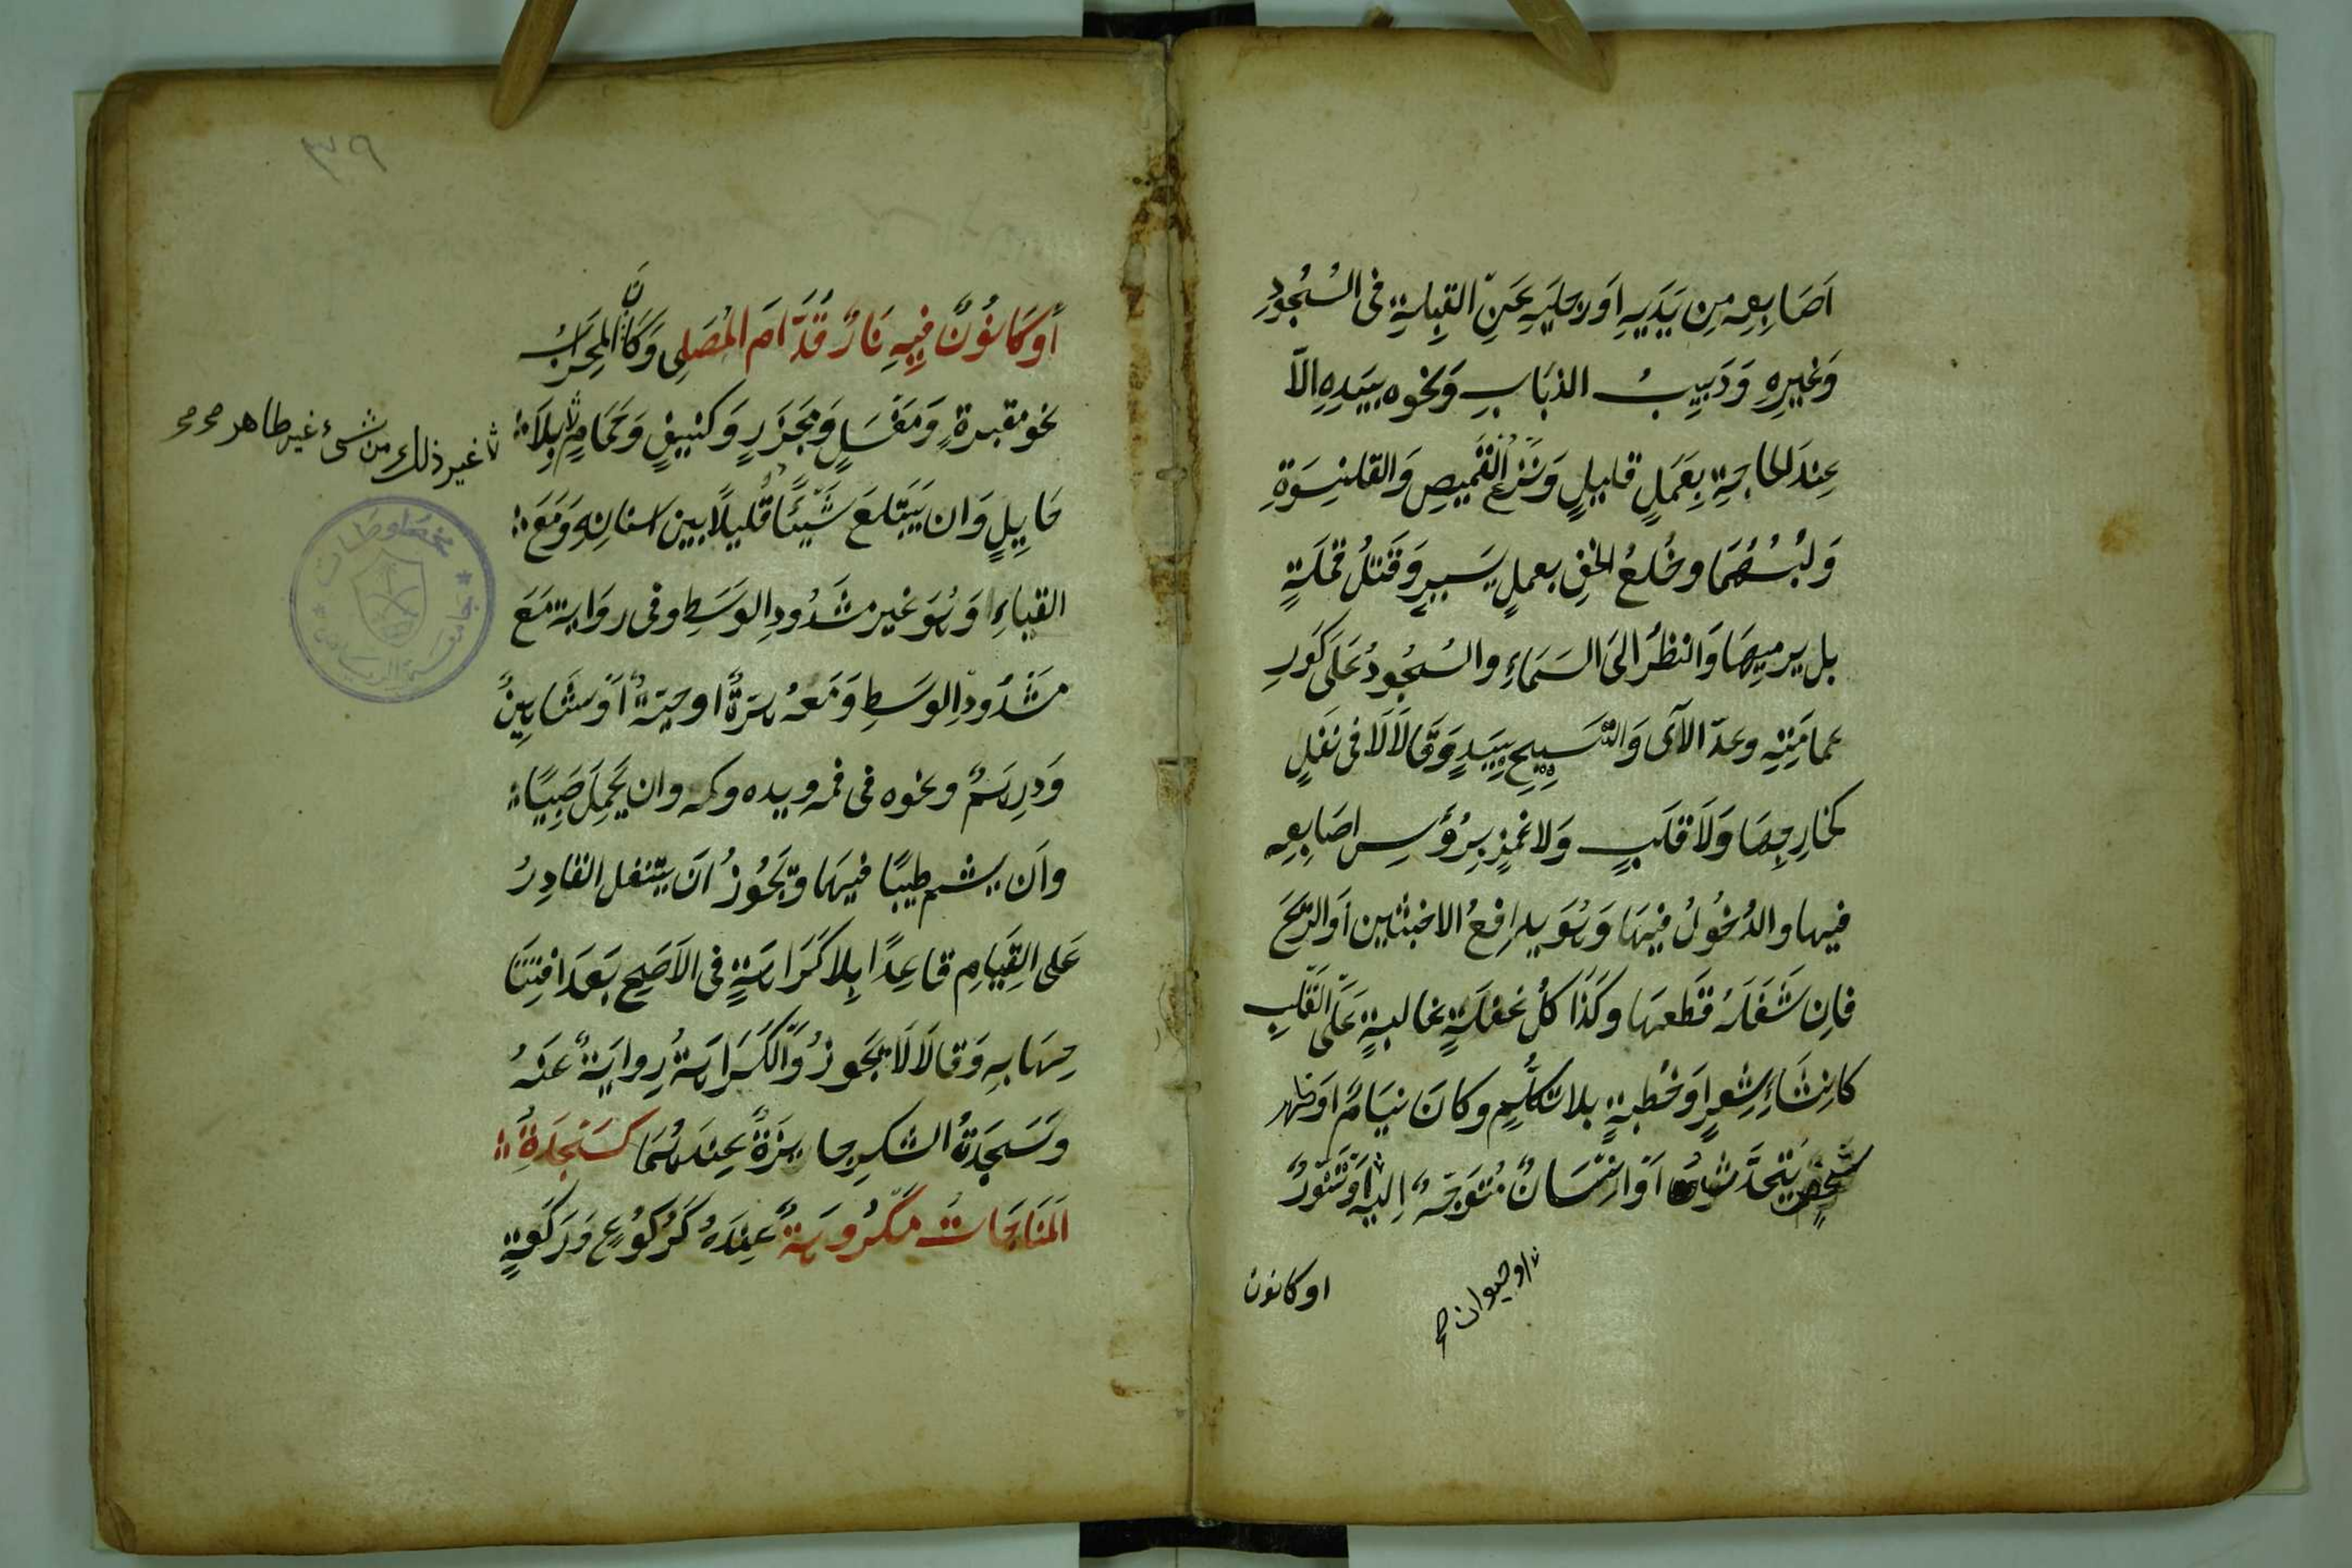 اَصَابِعِهِ مِن يَدَيهِ اَورِجلَيهِ عَنِ القِبلَةِ فى السُجُودِ
وَغَيرِهِ وَدَبِيبُ الذبَابِ وَنحوه بِيَدِهِ الاّ
عِندَ الحاجَةِ بِعَمَلٍ قليلٍ وَنَزعُ القَميصِ وَالقلنسوَةِ
وَلُبسُهُمَا وخُلعُ الخفِ بعملٍ يَسيرٍ وَقَتلُ قملَةٍ
بل يرميهَا وَالنظرُ الىَ السَمَاءِ والسُجُودُ عَلَى كَورِ
عمامَتِهِ وعدّ الآى وَالتّسبيحِ بِيَدٍ وَقَالاَ لاَ فى نَفلٍ
كخارجِهَا وَلاَ قلَبٍ وَلا غمزٍ بِرُؤسِ اصَابِعِهِ
فيها والدُخُولُ فيهَا وَهُوَ يدافِعُ الاخبثين اَوالرّيحَ
فاِن شَغَلَهُ قَطَعهَا وكَذَا كلُ غفلَةٍ غالبةٍ عَلَى القَلبِ
كانِشَاءِ شِعرٍ اَو خُطبةٍ بلا تكلّمٍ وكانَ نيَامٌ اَوظهر
شخصٍ يَتحَدّثُ اَوانِسَانٌ مُتَوَجّهٌ اِليهِ اَوتَنّورٌ
اوحيوان صح
اوكانون
٣٧٩
أوكَانُونٌ فِيهِ نَارٌ قدّامَ المُصَلِى وَكَانَ المِحرَابُ
نحو مقبرةٍ وَمَغسَلٍ وَمجزَرٍ وَكنيفٍ وَحَمَامٍ بِلاَ
غير ذلك من شىء غير طاهر صح صح
حَايِلٍ وَان يَبتلعَ شَيئًا قليلًا بين اسنانِهِ وَمَعَ
القباءِ وَهُوَ غير مشدُودِ الوَسَطِ وفى روَاية مَعَ
مشَدُودِ الوسَطِ وَمَعهُ هرَةٌ اوحيَةٌ اَوشاهِينٌ
وَدرِهَمٌ ونحوه فى فمه ويده وكمه وان يَحمِلَ صَبِيًا
واَن يشم طيبًا فيهَا وَيَجُوزُ اَن يتنفل القادِرُ
عَلى القِيَامِ قاعِدًا بِلا كَرَاهَةٍ فى الاَصَحِ بَعدَ افتِتَا
حِهَا بِهِ وَقالاَ لاَ يَجَوزُ وَالكَرَاهَةُ رِوايَةٌ عَنهُ
وَسَجدَةُ الشكرِ جايزَةٌ عِندَهُمَا كسَجدَةِ
المَنَاجَاتِ مَكرُوهَةٌ عِندَهُ كَرُكُوعٍ وَرَكعَةٍ
مخطوطات
جامعة الرياض